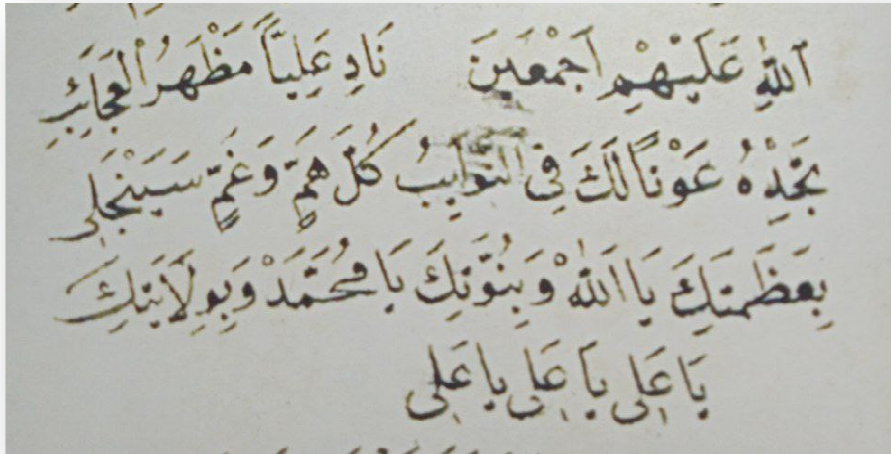 اَللّٰهِ عَلَيْهِمْ اَجْمَعَينَ نَادِ عَلِيّاً مَظْهَرُ الْعَجَايَبِ
تَجِدْهُ عَوْنًا لَكَ فِى النَّوَايِبُ كُلَّ هَمٍّ وَغَمٍّ سَيَنْجَلِى
بِعَظَمَتِكَ يَا اَللّٰهْ وَبِنُوَّتِكَ يَا مُحَمَّدَ وَبِوِلَايَتِكَ
يَا عَلِى يَا عَلِى يا عَلِى